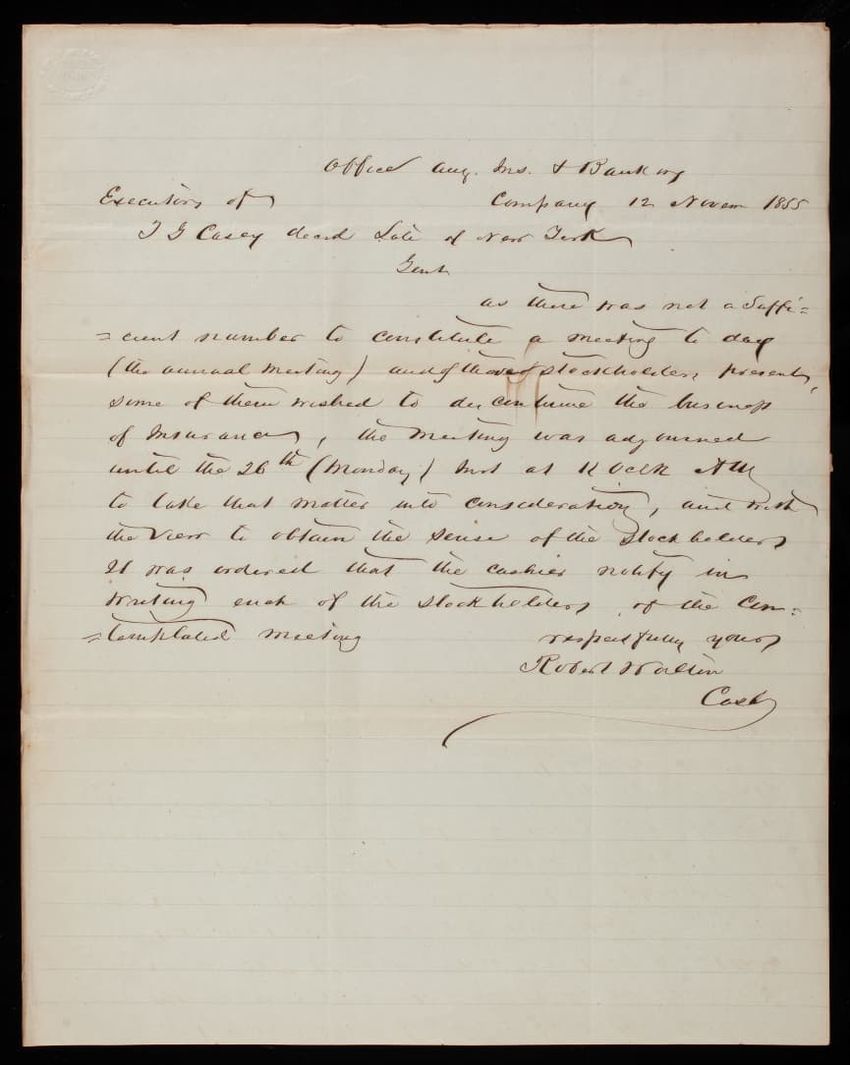 Office Aug. Ins. & Banking
Executors of Company 12 Novem 1855
T G Casey decd Late of New York
Gent
as there was not a Suffi=
=cient number to constitute a meeting to day
(the annual meeting) and of those of stockholders present,
some of them wished to discontinue the business
of Insurance, the meeting was adjourned
until the 26th (Monday) Inst at 11 Oclk AM
to take that matter into consideration, and with
the View to obtain the sense of the Stockholders
It was ordered that the cashier notify in
writing each of the Stockholders of the Con=
=templated meeting respectfully yours
Robert Walton
Cash